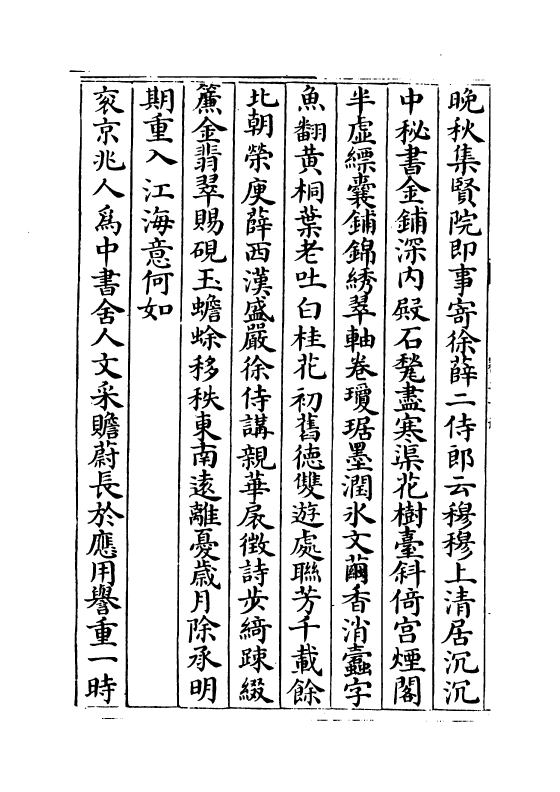 晚秋集賢院即事寄徐薛二侍郎云穆穆上清居沉沉
中秘書金鋪深内殿石甃盡寒渠花樹臺斜倚宫煙閣
半虛縹囊鋪錦綉翠軸卷瓊琚墨潤氷文繭香消蠹字
魚翻黄桐葉老吐白桂花初舊德雙遊處聯芳千載餘
北朝榮庾薛西漢盛嚴徐侍講親華扆徵詩步綺疎綴
簾金翡翠賜硯玉蟾蜍移秩東南遠離憂歲月除承明
期重入江海意何如
衮京兆人爲中書舍人文采贍蔚長於應用譽重一時